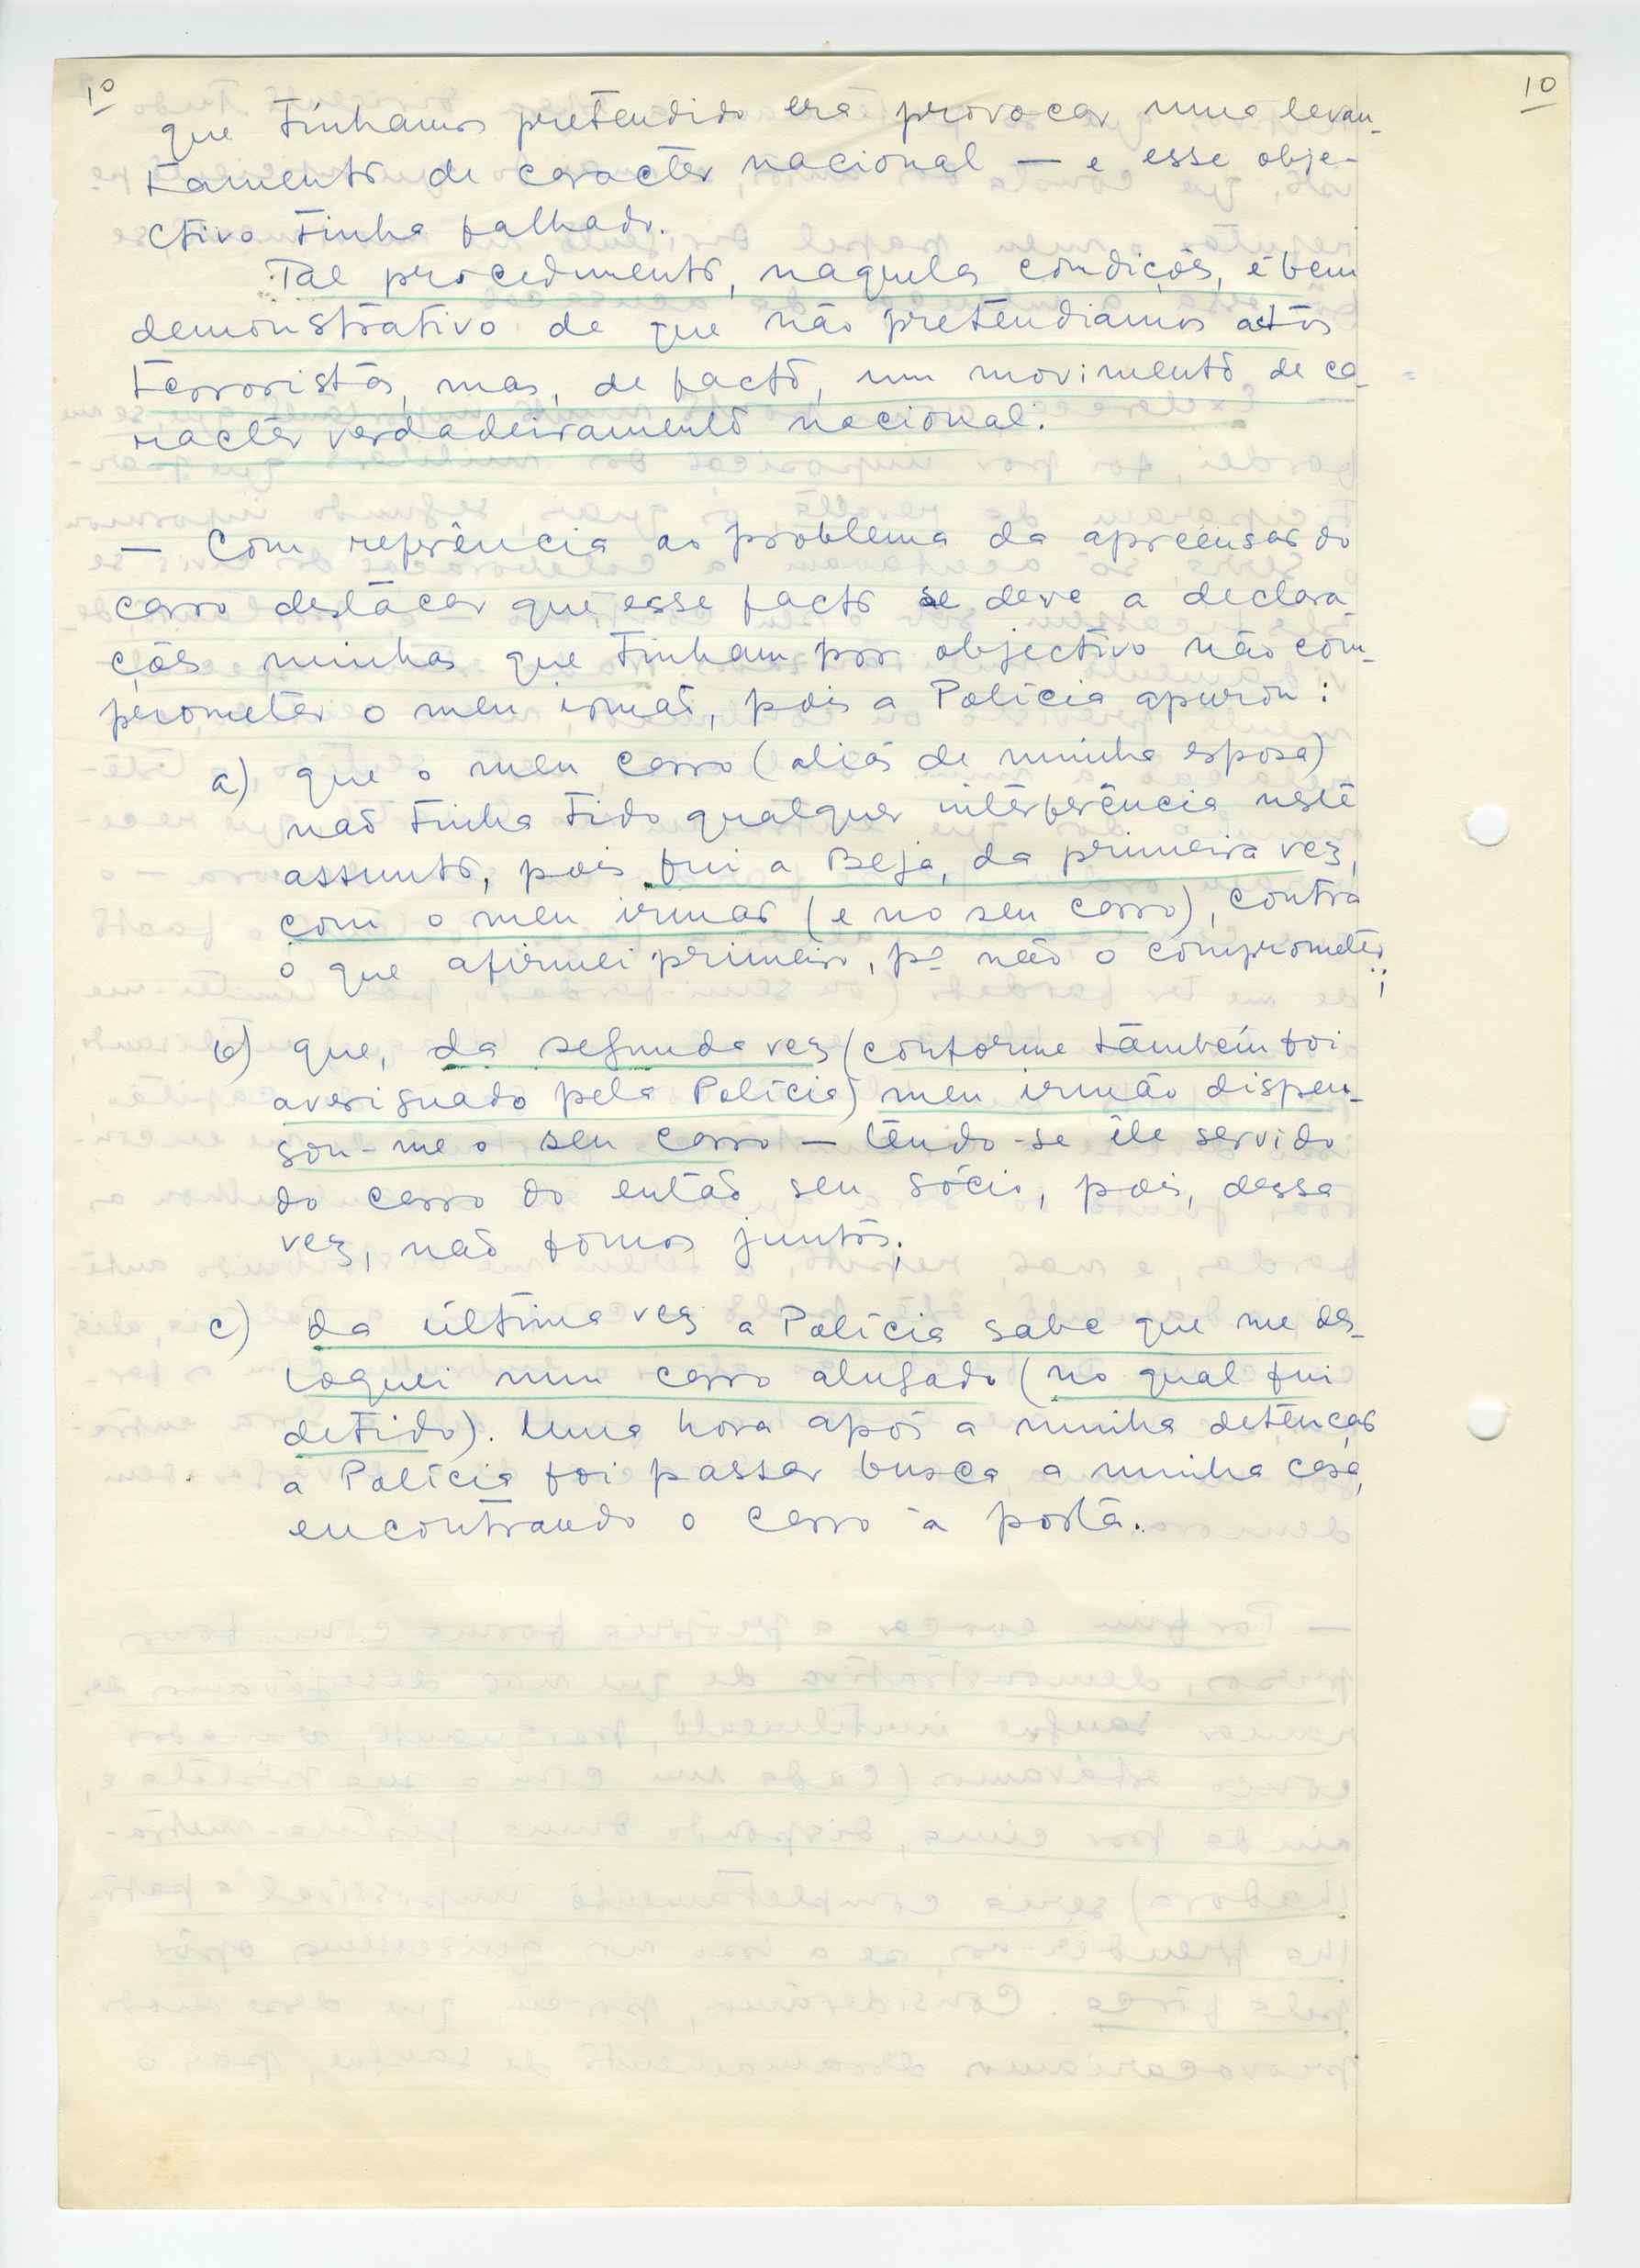 10 10
que tínhamos pretendido era provocar uma levan-
tamento de caracter nacional — e esse obje-
ctivo tinha falhado.
Tal procedimento, naquelas condições, é bem
demonstrativo de que não pretendíamos actos
terroristas, mas, de facto, um movimento de ca-
racter verdadeiramente nacional.
— Com referência ao problema da apreensão do
carro destacar que esse facto se deve a declara-
ções minhas que tinham por objectivo não com-
prometer o meu irmão, pois a Polícia apurou:
a) que o meu carro (aliás de minha esposa)
não tinha tido qualquer interferência neste
assunto, pois fui a Beja, da primeira vez,
com o meu irmão (e no seu carro), contra
o que afirmei primeiro, pª não o comprometer;
b) que, da segunda vez (conforme também foi
averiguado pela Polícia) meu irmão dispen-
sou-me o seu carro — tendo-se êle servido
do carro do então seu sócio, pois, dessa
vez, não fomos juntos;
c) da última vez a Polícia sabe que me des-
loquei num carro alugado (no qual fui
detido). Uma hora após a minha detenção
a Polícia foi passar busca a minha casa,
encontrando o carro à porta.